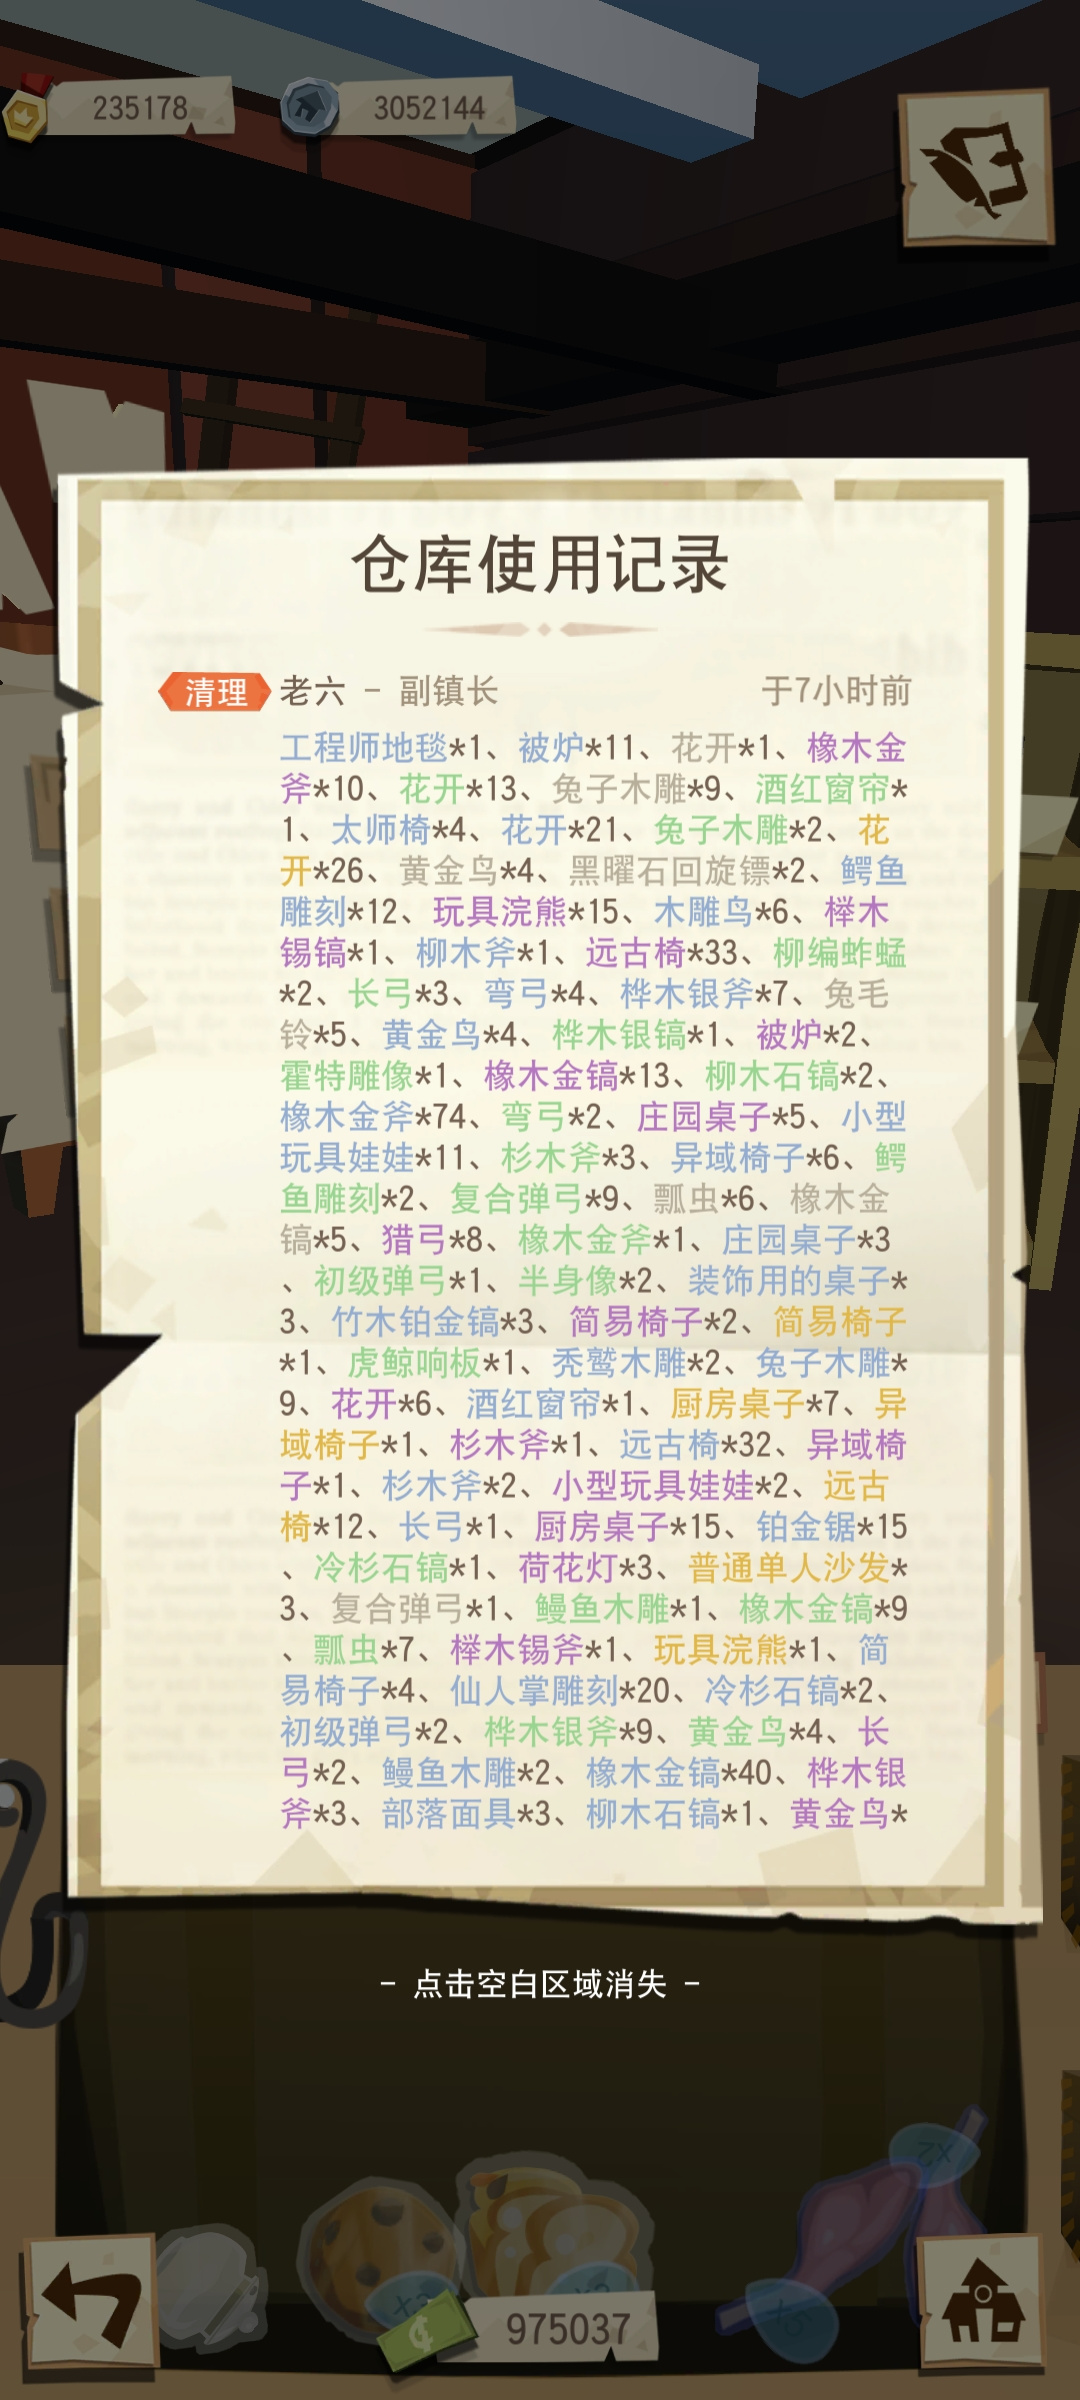 235178
3052144
仓库使用记录
清理 老六 - 副镇长 于7小时前
工程师地毯*1、被炉*11、花开*1、橡木金
斧*10、花开*13、兔子木雕*9、酒红窗帘*
1、太师椅*4、花开*21、兔子木雕*2、花
开*26、黄金鸟*4、黑曜石回旋镖*2、鳄鱼
雕刻*12、玩具浣熊*15、木雕鸟*6、榉木
锡镐*1、柳木斧*1、远古椅*33、柳编蚱蜢
*2、长弓*3、弯弓*4、桦木银斧*7、兔毛
铃*5、黄金鸟*4、桦木银镐*1、被炉*2、
霍特雕像*1、橡木金镐*13、柳木石镐*2、
橡木金斧*74、弯弓*2、庄园桌子*5、小型
玩具娃娃*11、杉木斧*3、异域椅子*6、鳄
鱼雕刻*2、复合弹弓*9、瓢虫*6、橡木金
镐*5、猎弓*8、橡木金斧*1、庄园桌子*3
、初级弹弓*1、半身像*2、装饰用的桌子*
3、竹木铂金镐*3、简易椅子*2、简易椅子
*1、虎鲸响板*1、秃鹫木雕*2、兔子木雕*
9、花开*6、酒红窗帘*1、厨房桌子*7、异
域椅子*1、杉木斧*1、远古椅*32、异域椅
子*1、杉木斧*2、小型玩具娃娃*2、远古
椅*12、长弓*1、厨房桌子*15、铂金锯*15
、冷杉石镐*1、荷花灯*3、普通单人沙发*
3、复合弹弓*1、鳗鱼木雕*1、橡木金镐*9
、瓢虫*7、榉木锡斧*1、玩具浣熊*1、简
易椅子*4、仙人掌雕刻*20、冷杉石镐*2、
初级弹弓*2、桦木银斧*9、黄金鸟*4、长
弓*2、鳗鱼木雕*2、橡木金镐*40、桦木银
斧*3、部落面具*3、柳木石镐*1、黄金鸟*
- 点击空白区域消失 -
975037